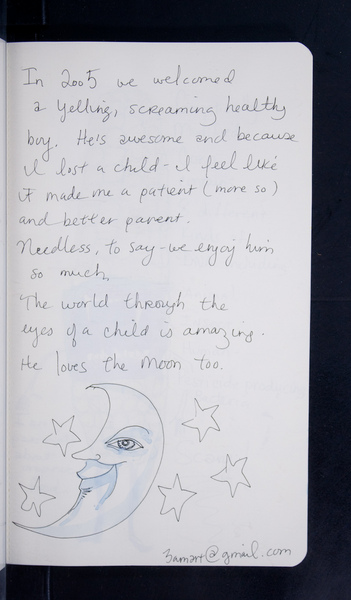 In 2005 we welcomed
a yelling, screaming healthy
boy. He's awesome and because
I lost a child - I feel like
it made me a patient (more so)
and better parent.
Needless, to say - we enjoy him
so much,
The world through the
eyes of a child is amazing.
He loves the moon too.
3amart@gmail.com